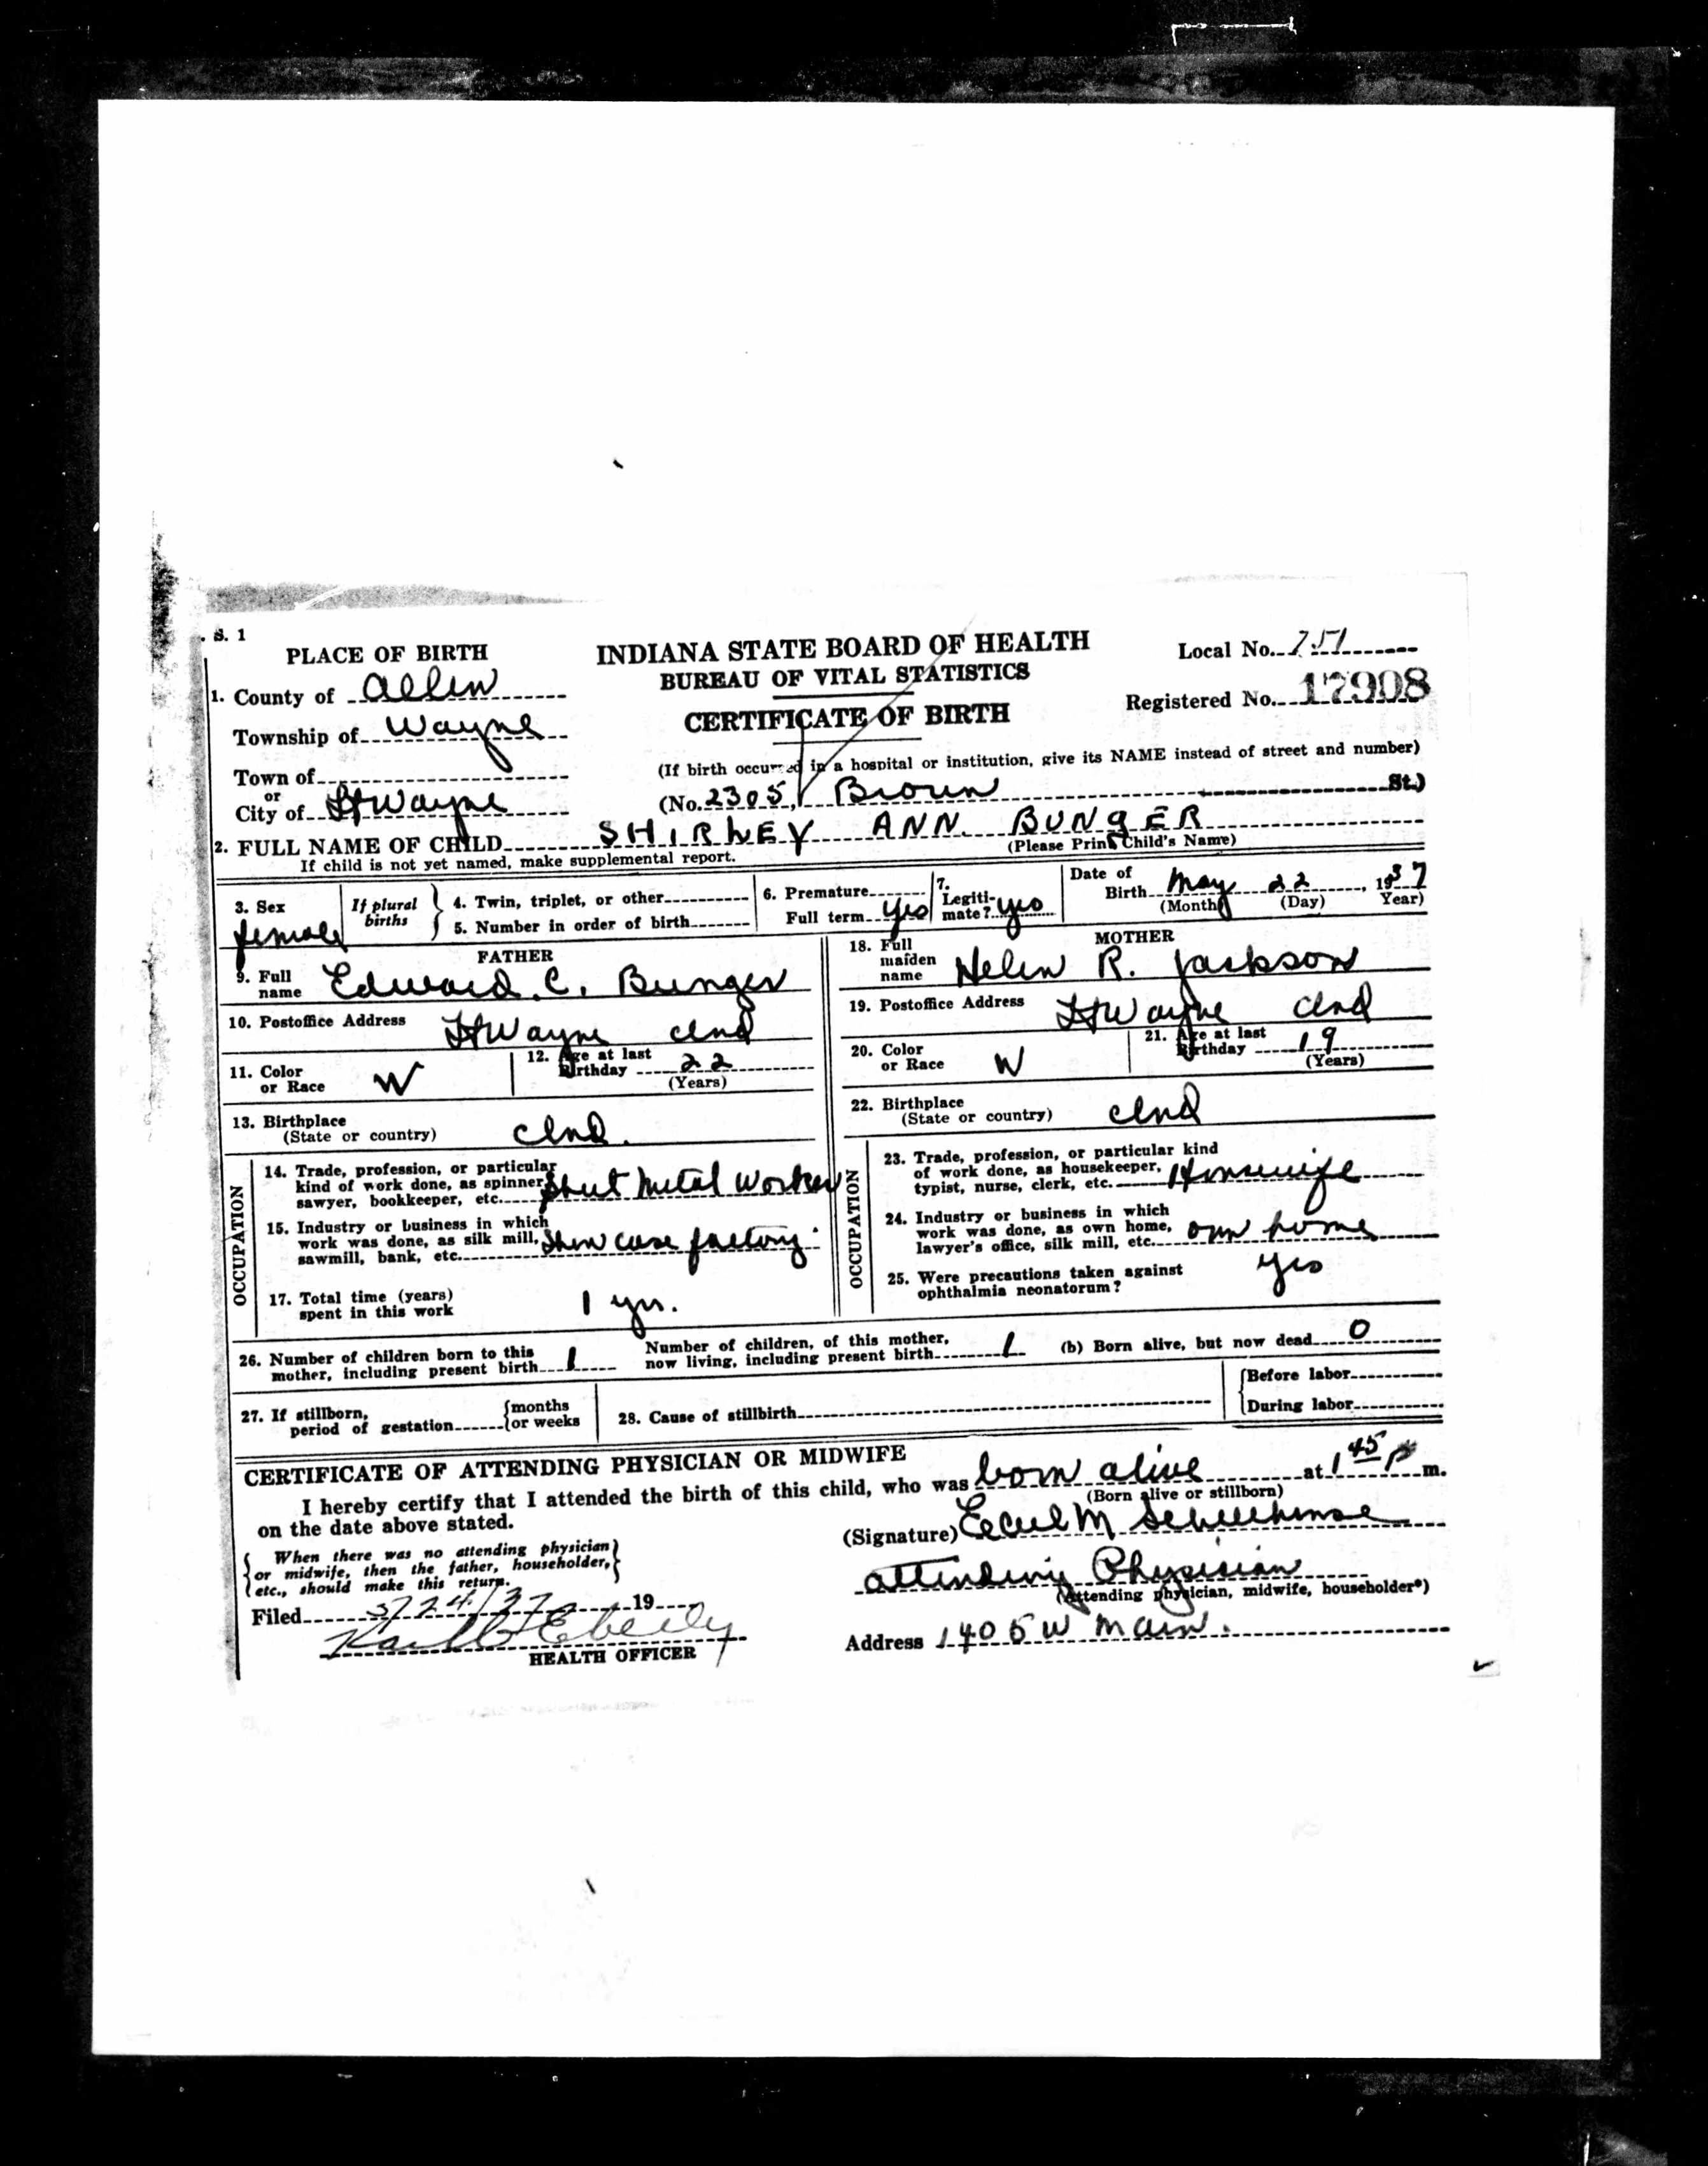 . S. 1
PLACE OF BIRTH
INDIANA STATE BOARD OF HEALTH
BUREAU OF VITAL STATISTICS
CERTIFICATE OF BIRTH
Local No. 751
Registered No. 17908
1. County of Allen
Township of Wayne
Town of
or
City of Ft Wayne
(If birth occurred in a hospital or institution, give its NAME instead of street and number)
(No. 2305, Brown St.)
2. FULL NAME OF CHILD SHIRLEY ANN BUNGER
If child is not yet named, make supplemental report. (Please Print Child's Name)
3. Sex female
If plural births
4. Twin, triplet, or other
5. Number in order of birth
6. Premature
Full term yes
7. Legiti-
mate? yes
Date of
Birth May 22, 1937
(Month) (Day) Year)
FATHER
9. Full
name Edward C. Bunger
10. Postoffice Address Ft Wayne Ind
11. Color
or Race W
12. Age at last
Birthday 22
(Years)
13. Birthplace
(State or country) Ind.
OCCUPATION
14. Trade, profession, or particular
kind of work done, as spinner,
sawyer, bookkeeper, etc. Sheet Metal Worker
15. Industry or business in which
work was done, as silk mill,
sawmill, bank, etc. Show case factory
17. Total time (years)
spent in this work 1 yr.
MOTHER
18. Full
maiden
name Helen R. Jackson
19. Postoffice Address Ft Wayne Ind
20. Color
or Race W
21. Age at last
Birthday 19
(Years)
22. Birthplace
(State or country) Ind
OCCUPATION
23. Trade, profession, or particular kind
of work done, as housekeeper,
typist, nurse, clerk, etc. Housewife
24. Industry or business in which
work was done, as own home,
lawyer's office, silk mill, etc. own home
25. Were precautions taken against
ophthalmia neonatorum? yes
26. Number of children born to this
mother, including present birth 1
Number of children, of this mother,
now living, including present birth 1
(b) Born alive, but now dead 0
27. If stillborn,
period of gestation {months
{or weeks
28. Cause of stillbirth
{Before labor
{During labor
CERTIFICATE OF ATTENDING PHYSICIAN OR MIDWIFE
I hereby certify that I attended the birth of this child, who was born alive at 1 45 P m.
(Born alive or stillborn)
on the date above stated.
{ When there was no attending physician }
{ or midwife, then the father, householder, }
{ etc., should make this return.
(Signature) M
attending Physician
(Attending physician, midwife, householder*)
Filed 5/24/37 19
Eberly
HEALTH OFFICER
Address 1405 W Main.